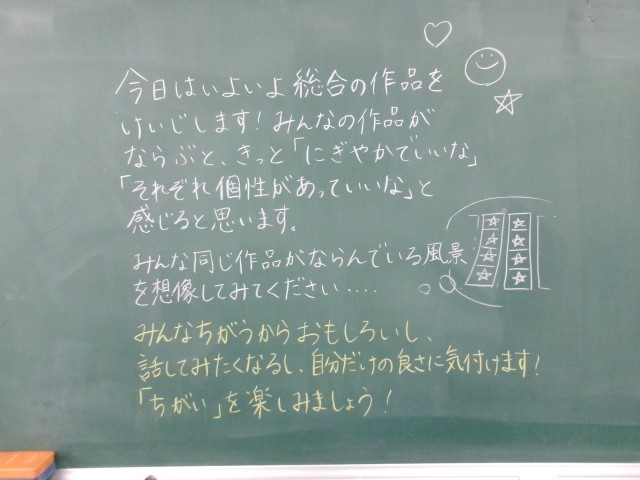 今日はいよいよ総合の作品を
けいじします！みんなの作品が
ならぶと、きっと「にぎやかでいいな」
「それぞれ個性があっていいな」と
感じると思います。
みんな同じ作品がならんでいる風景
を想像してみてください‥‥
みんなちがうからおもしろいし、
話してみたくなるし、自分だけの良さに気付けます！
「ちがい」を楽しみましょう！